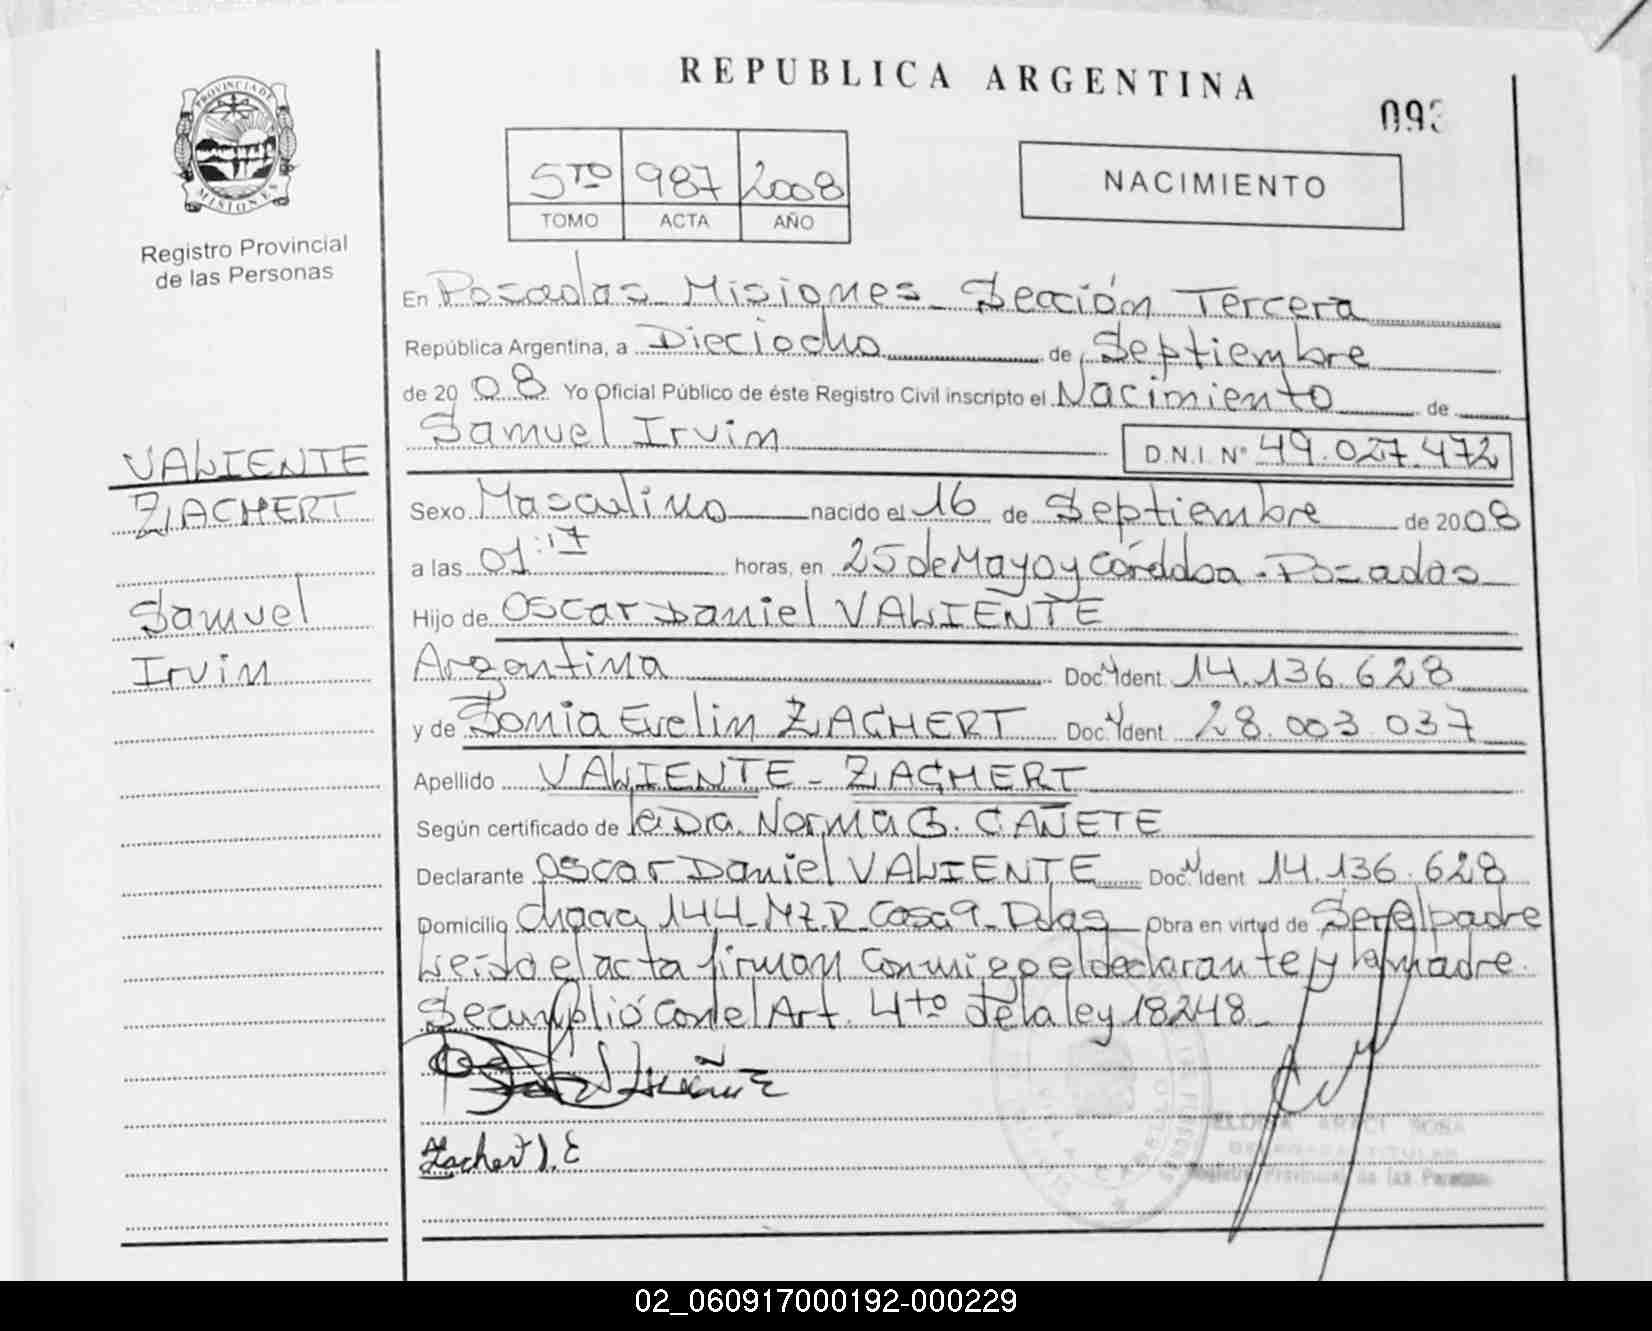 REPUBLICA ARGENTINA
PROVINCIA DE
MISIONES
Registro Provincial
de las Personas
5TO 987 2008
TOMO ACTA AÑO
NACIMIENTO
En Posadas Misiones - Sección Tercera
República Argentina, a Dieciocho de Septiembre
de 2008 Yo Oficial Público de éste Registro Civil inscripto el Nacimiento de
Samuel Irvin D.N.I. N° 49.027.472
VALIENTE
ZACHERT
Samuel
Irvin
Sexo Masculino nacido el 16 de Septiembre de 2008
a las 01:17 horas, en 25 de Mayo y Córdoba - Posadas
Hijo de Oscar Daniel VALIENTE
Argentina Doc. Ident. 14.136.628
y de Sonia Evelin ZACHERT Doc. Ident. 28.003.037
Apellido VALIENTE - ZACHERT
Según certificado de la Dra. Norma G. CAÑETE
Declarante Oscar Daniel VALIENTE Doc. Ident 14.136.628
Domicilio Chacra 144 - MZ. P Casa 9 - Pdas Obra en virtud de Ser el padre
Leída el acta firman conmigo el declarante y la madre.
Se cumplió con el Art. 4to de la ley 18248 -
Zachert S. E
Registro Provincial de las Personas
02_060917000192-000229